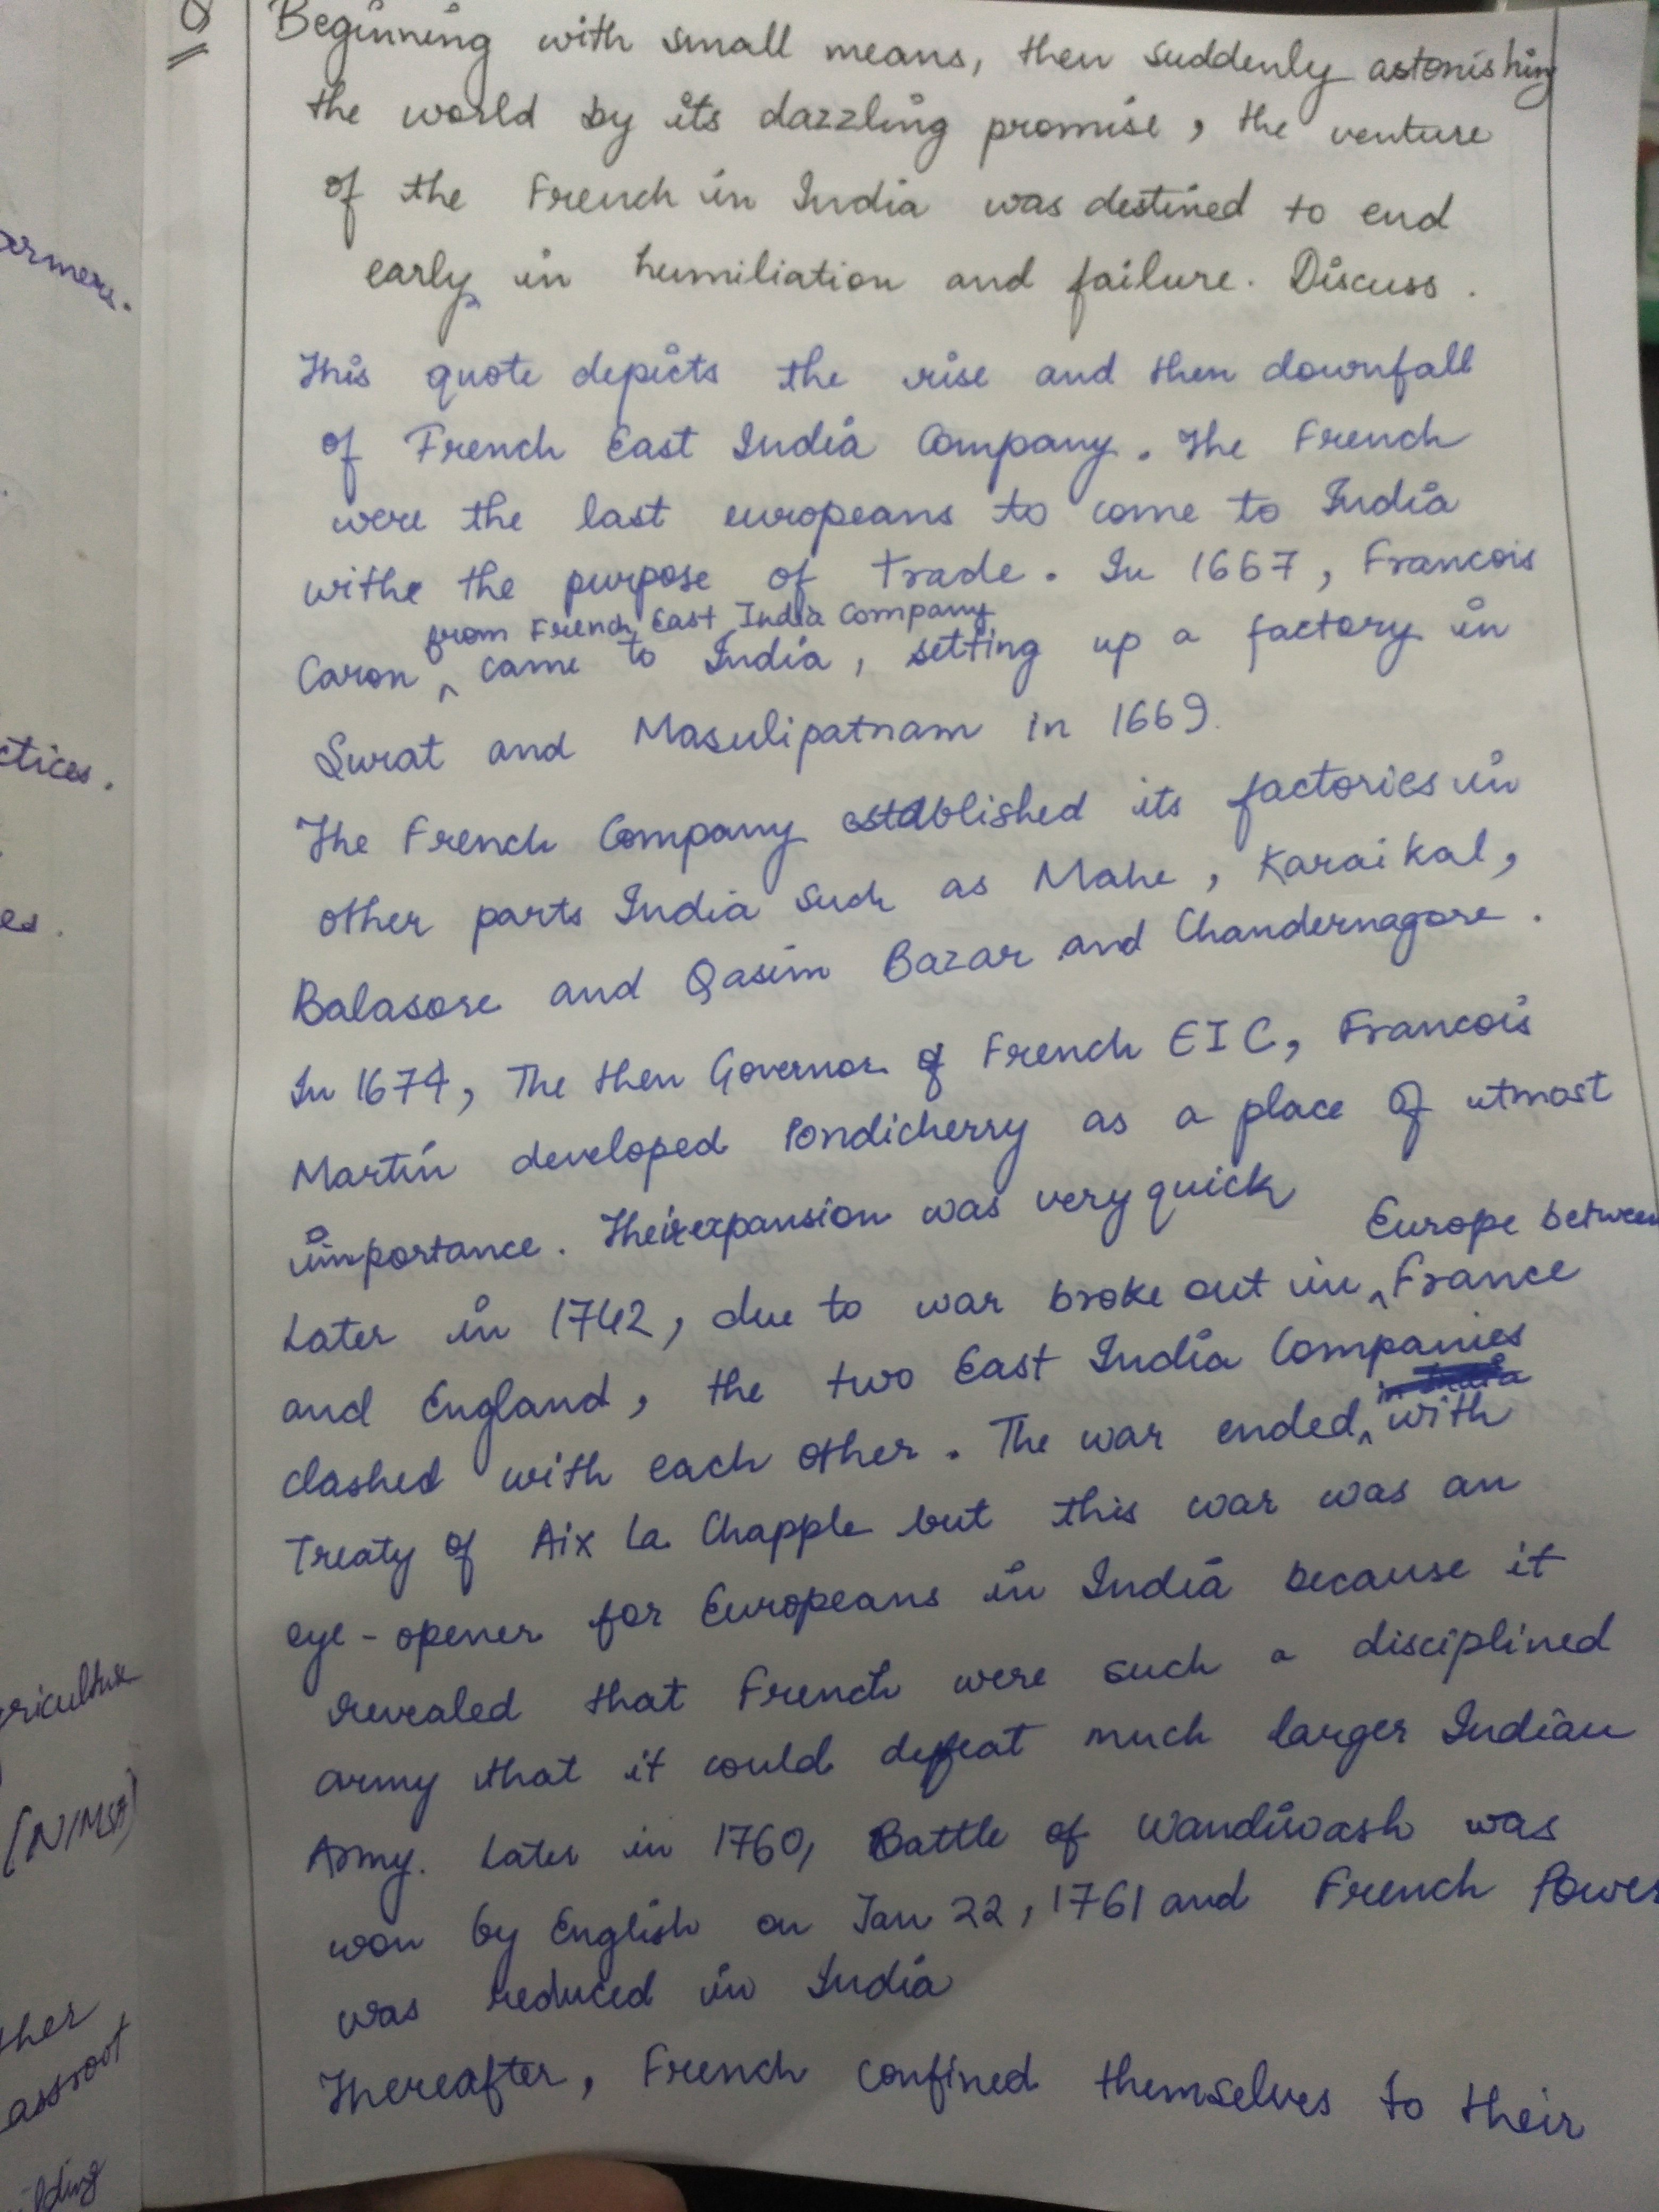 Q
Beginning with small means, then suddenly astonishing
the world by its dazzling promise, the venture
of the French in India was destined to end
early in humiliation and failure. Discuss.
This quote depicts the rise and then downfall
of French East India Company. The French
were the last europeans to come to India
withe the purpose of Trade. In 1667, Francois
from French East India Company
Caron ^ came to India, setting up a factory in
Surat and Masulipatnam in 1669.
The French Company established its factories in
other parts India such as Mahe, Karaikal,
Balasore and Qasim Bazar and Chandernagore.
In 1674, The then Governor of French EIC, Francois
Martin developed Pondicherry as a place of utmost
importance. Their expansion was very quick
Europe between
Later in 1742, due to war broke out in ^ France
and England, the two East India Companies
clashed with each other. The war ended ^ with
Treaty of Aix La Chapple but this war was an
eye-opener for Europeans in India because it
revealed that French were such a disciplined
army that it could defeat much larger Indian
Army. Later in 1760, Battle of Wandiwash was
won by English on Jan 22, 1761 and French Power
was reduced in India
Thereafter, French confined themselves to their
ctices.
es.
griculture
ther
assroot
ilding